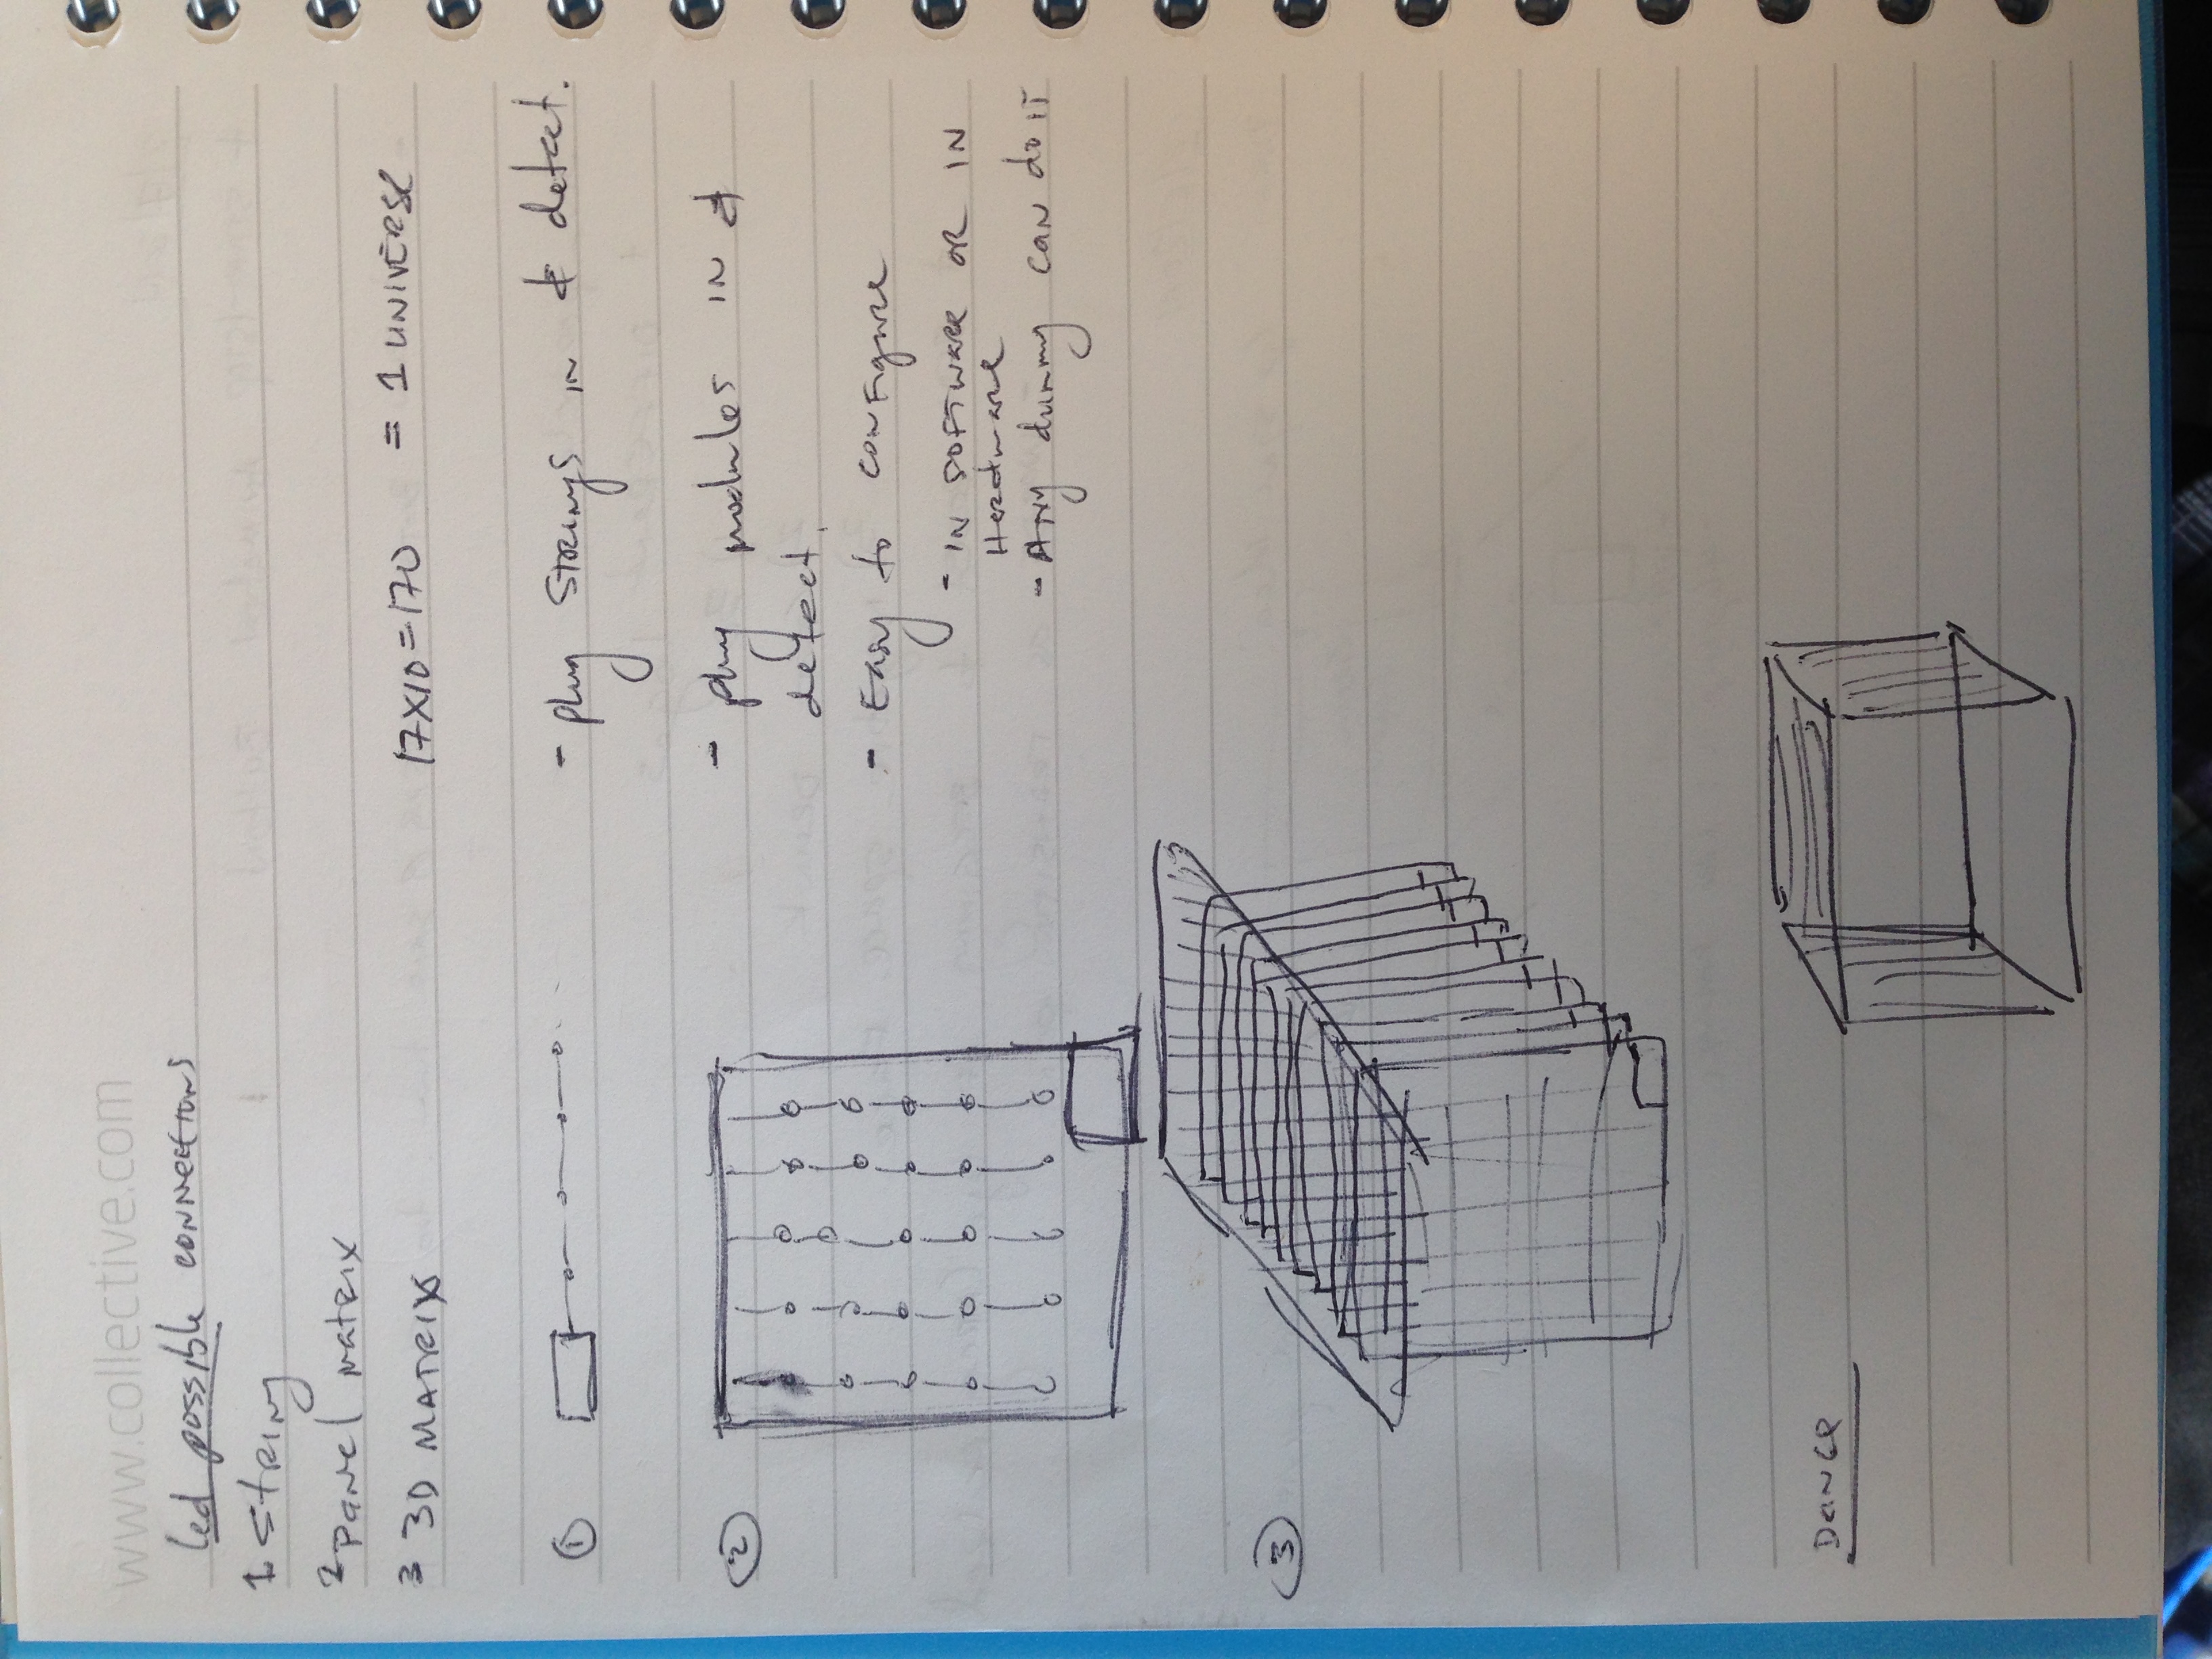 www.collective.com
led possible connections
1 String
2 Panel matrix
3 3D MATRIX
17x10=170 = 1 UNIVERSE
①
- plug strings in & detect.
②
- plug modules in &
detect.
- Easy to configure
- IN SOFTWARE OR IN
Hardware
- Any dummy can do it
③
Dance